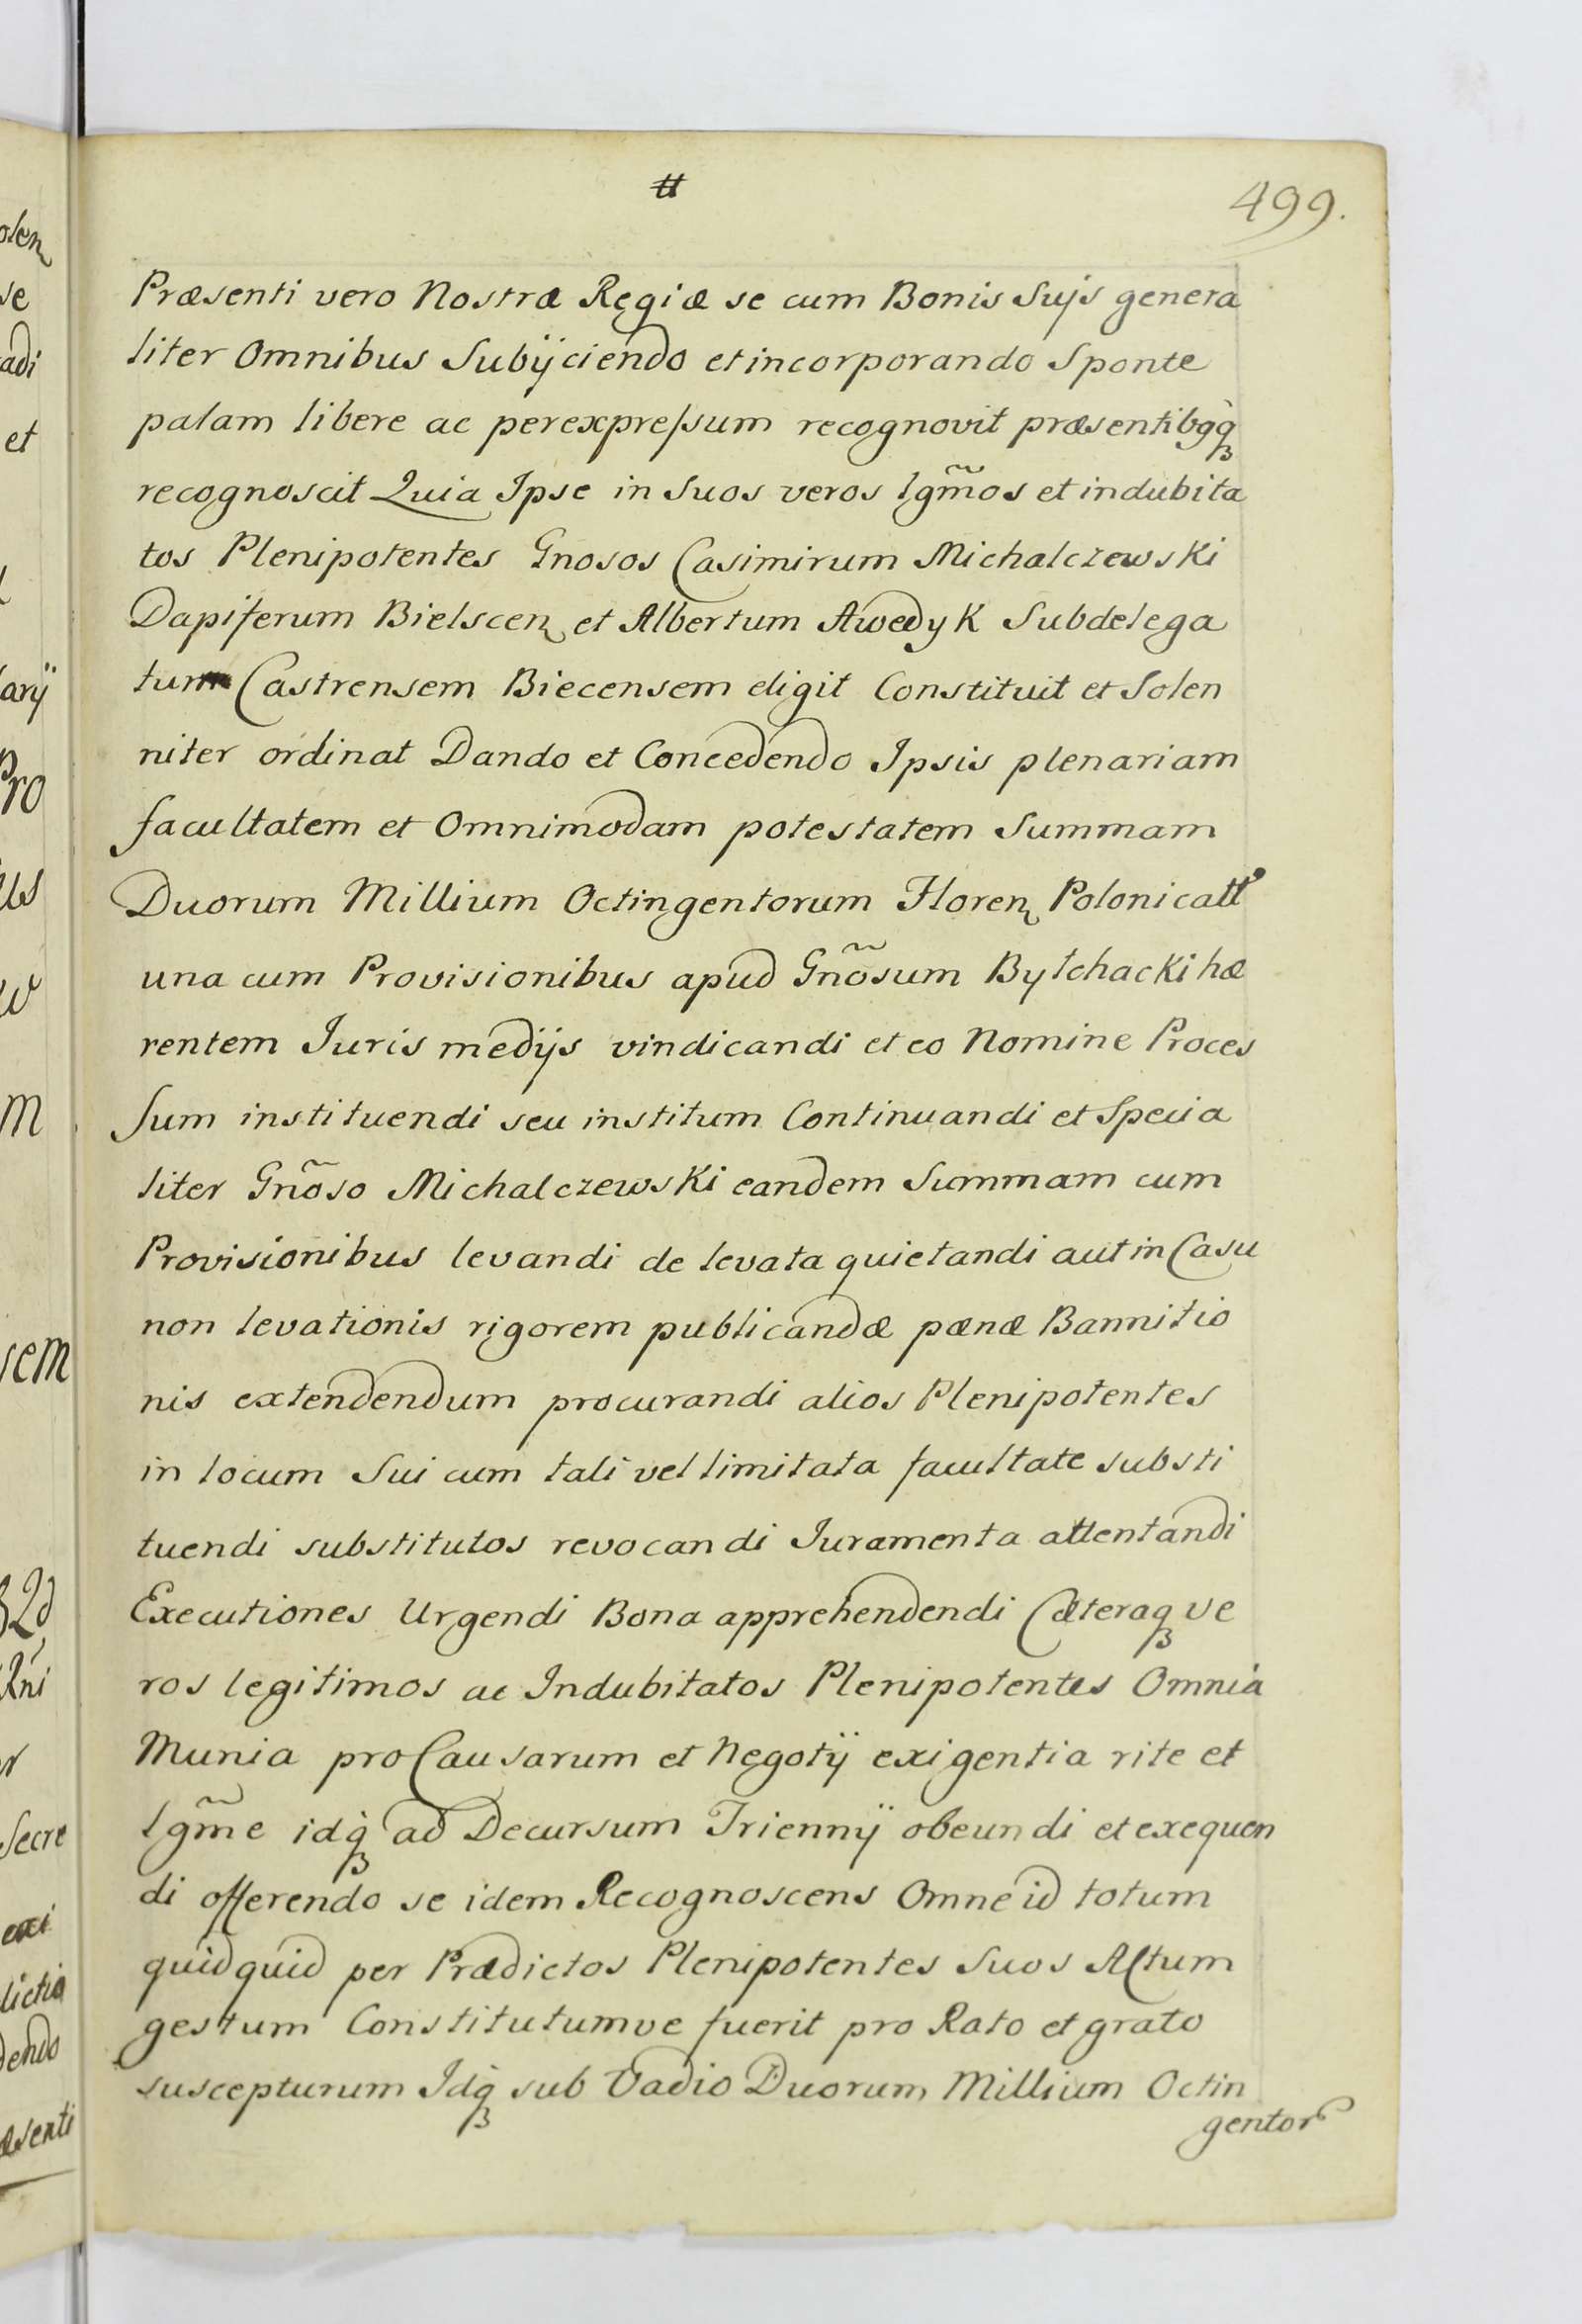 499.
Præsenti vero Nostræ Regiæ se cum Bonis Suÿs genera
liter Omnibus Subÿciendo et incorporando Sponte
palam libere ac perexpreſsum recognovit præsentibgq̀
recognoscit Quia Ipse in Suos veros lgm̃os et indubita
tos Plenipotentes Gnosos Casimirum Michalczewski
Dapiferum Bielscen et Albertum Awedyk Subdelega
tum Castrensem Biecensem eligit Constituit et Solen
niter ordinat Dando et Concedendo Ipsis plenariam
facultatem et Omnimodam potestatem Summam
Duorum Millium Octingentorum Floren Polonicall
una cum Provisionibus apud Gnõsum Bylchacki hæ
rentem Iuris medijs vindicandi et eo Nomine Proces
Sum instituendi seu institum Continuandi et Specia
liter Gnõso Michalczewski eandem Summam cum
Provisionibus levandi de levata quietandi aut in Casu
non levationis rigorem publicandæ pænæ Bannitio
nis extendendum procurandi alios Plenipotentes
in locum Sui cum tali vel limitata facultate substi
tuendi substitutos revocandi Iuramenta attentandi
Executiones Urgendi Bona apprehendendi Cæteraq ve
ros legitimos ac Indubitatos Plenipotentes Omnia
Munia pro Causarum et Negotÿ exigentia rite et
lgm̃e idq̀ ad Decursum Triennÿ obeundi et exequen
di offerendo se idem Recognoscens Omne id totum
quidquid per Prædictos Plenipotentes Suos Actum
gestum Constitutumve fuerit pro Rato et grato
suscepturum Idq̀ sub Vadio Duorum Millium Octin
gentor